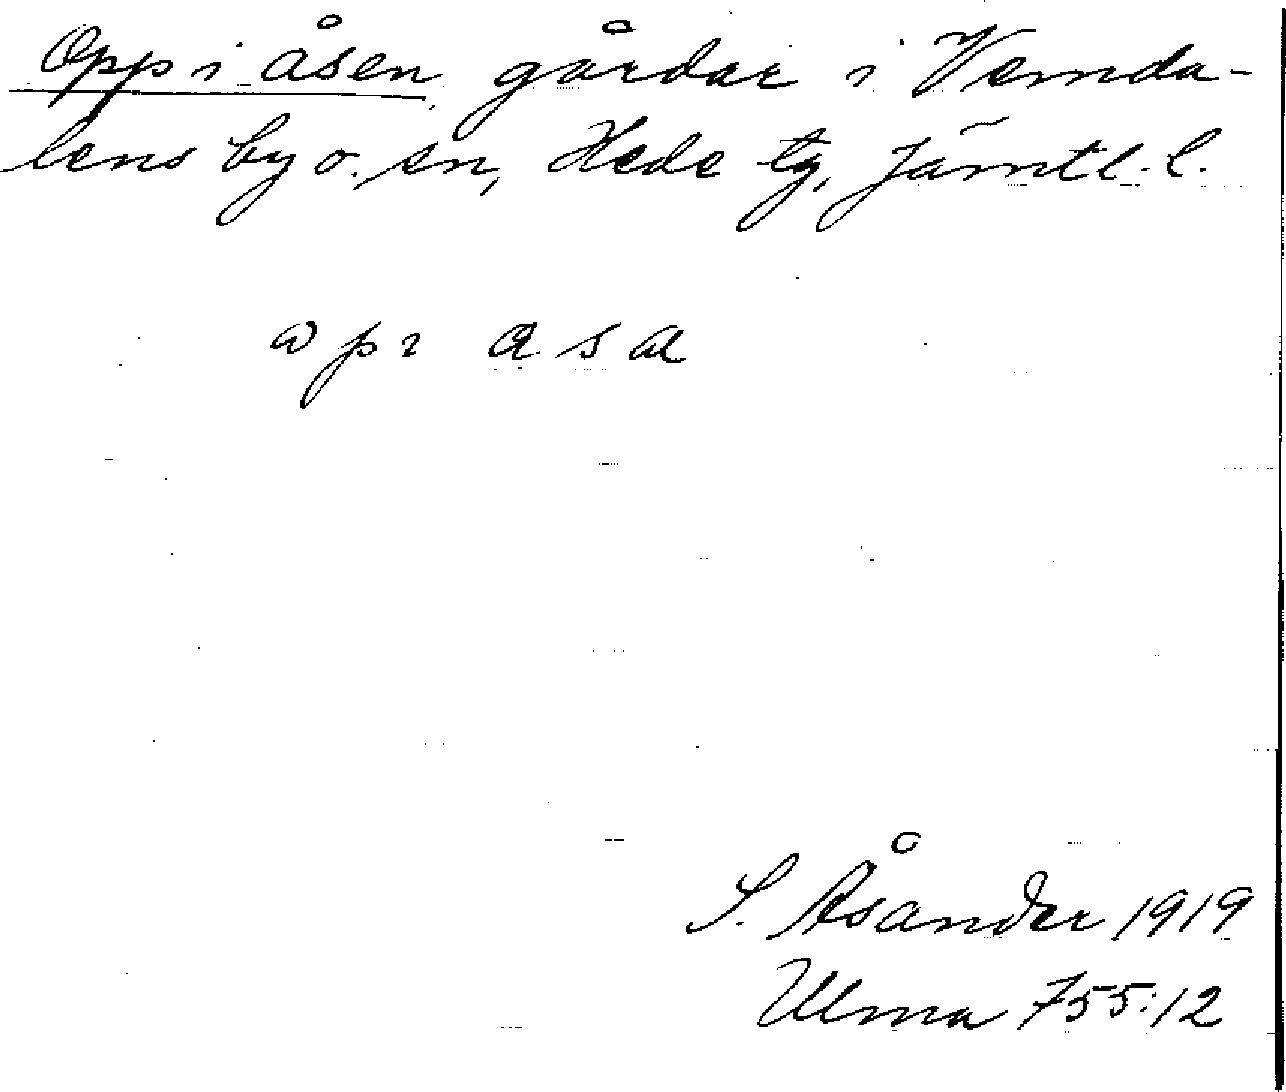 Opp i åsen, gårdar i Vemda-
lens by o. sn, Hede tg, Jämtl. l.
a p ı a s a
S. Åsander 1919
Ulma 755:12